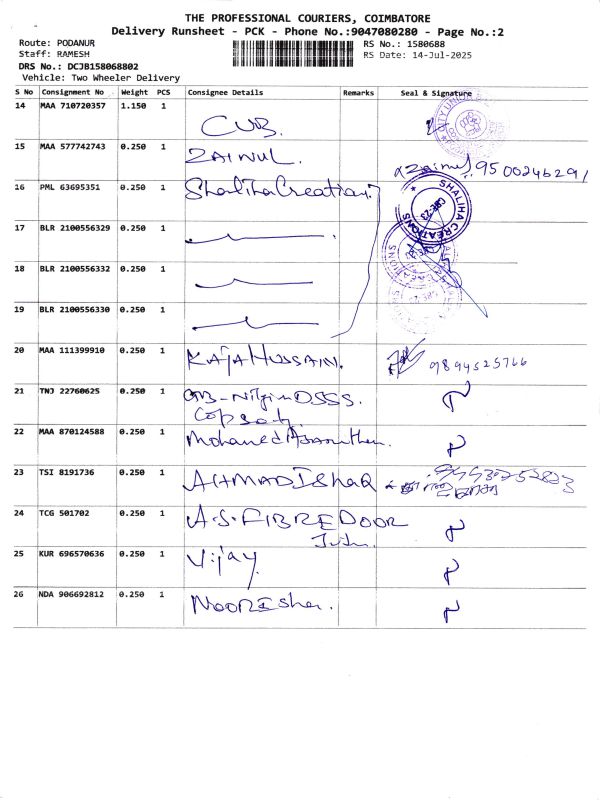 THE PROFESSIONAL COURIERS, COIMBATORE
Delivery Runsheet - PCK - Phone No.:9047080280 - Page No.:2
Route: PODANUR RS No.: 1580688
Staff: RAMESH RS Date: 14-Jul-2025
DRS No.: DCJB158068802
Vehicle: Two Wheeler Delivery
S No Consignment No Weight PCS Consignee Details Remarks Seal & Signature
14 MAA 710720357 1.150 1 CUB.
15 MAA 577742743 0.250 1 ZAINUL. 9500246291
16 PML 63695351 0.250 1 Shaliha Creation SHALIHA CREATIONS CBE-23
17 BLR 2100556329 0.250 1
18 BLR 2100556332 0.250 1
19 BLR 2100556330 0.250 1
20 MAA 111399910 0.250 1 KAJA HUSSAIN. 9894525766
21 TNJ 22760625 0.250 1
22 MAA 870124588 0.250 1 Mohamed
23 TSI 8191736 0.250 1 AHMAD IShaQ
24 TCG 501702 0.250 1 A.S. FIBRE DOOR
25 KUR 696570636 0.250 1 Vijay
26 NDA 906692812 0.250 1 NOORISha.